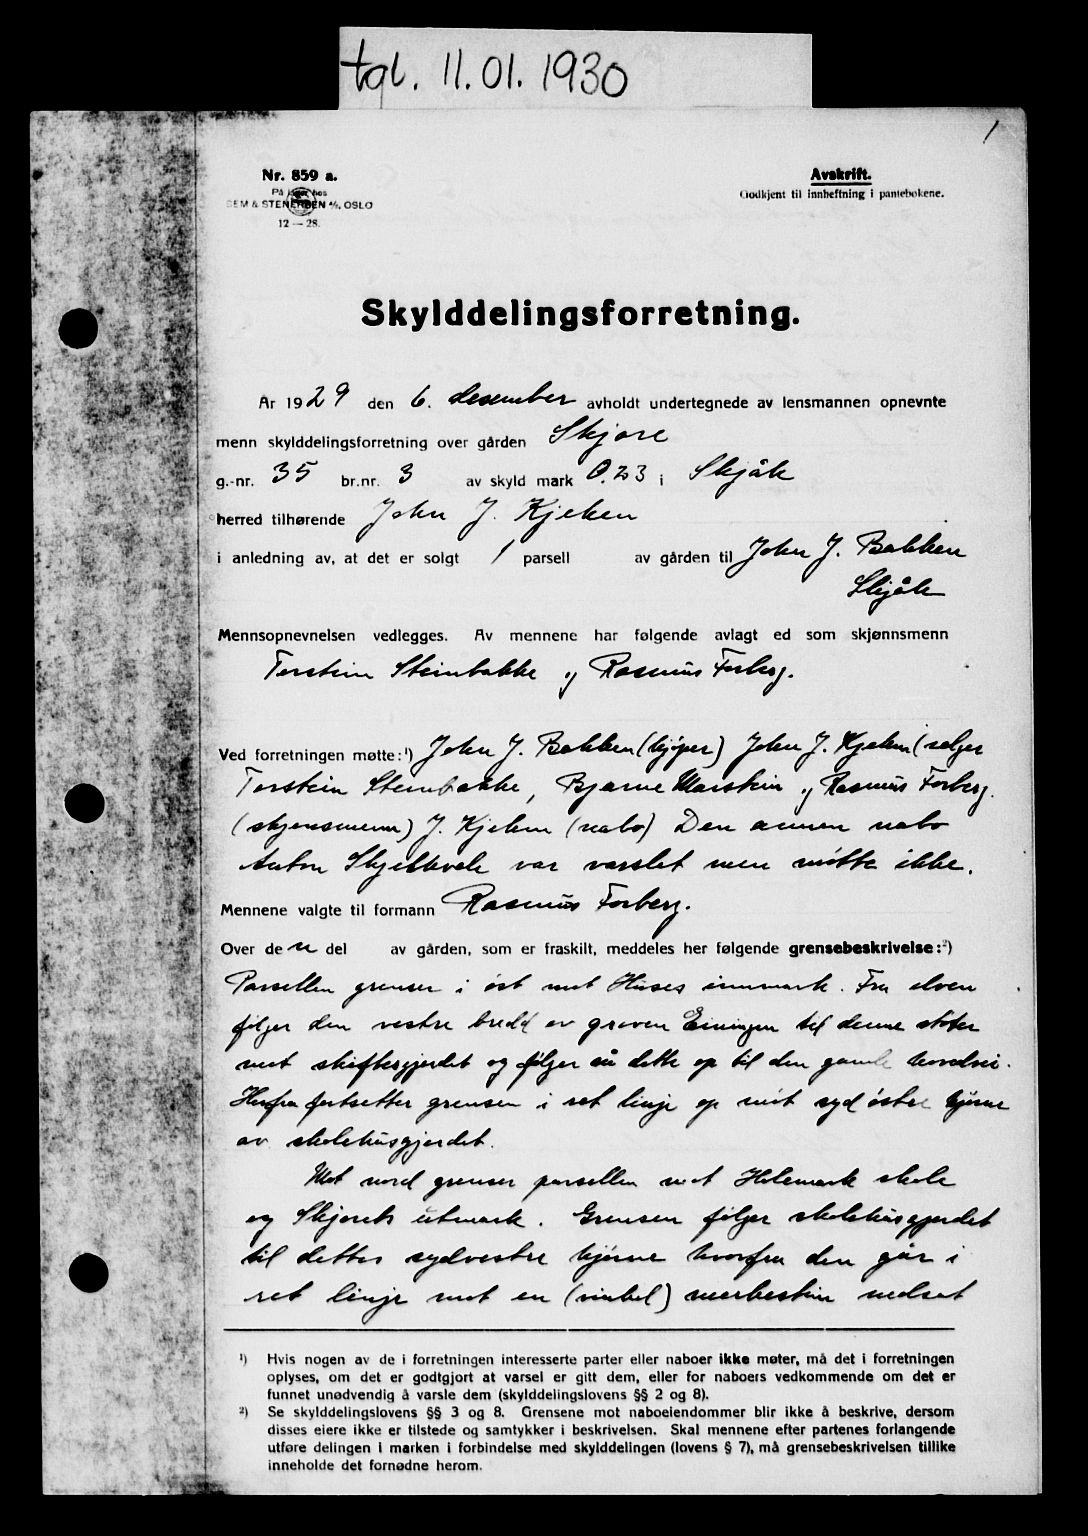 tgl. 11.01.1930
1
Nr. 859 a.
På lager hos
SEM & STENERSEN A/S, OSLO
12 — 28.
Avskrift.
Godkjent til innheftning i pantebøkene.
Skylddelingsforretning.
År 1929 den 6. desember avholdt undertegnede av lensmannen opnevnte
menn skylddelingsforretning over gården Skjore
g.-nr. 35 br.nr. 3 av skyld mark 0.23 i Skjåk
herred tilhørende John J. Kjeken
i anledning av, at det er solgt 1 parsell av gården til John J. Bakken
Skjåk
Mennsopnevnelsen vedlegges. Av mennene har følgende avlagt ed som skjønnsmenn
Torstein Steinbakke og Rasmus Forberg.
Ved forretningen møtte:¹) John J. Bakken (kjøper) John J. Kjeken (selger
Torstein Steinbakke, Bjarne Marstein og Rasmus Forberg.
(skjønsmenn) J. Kjeken (nabo) Den annen nabo
Anton Skjellkvale var varslet men møtte ikke.
Mennene valgte til formann Rasmus Forberg.
Over den del av gården, som er fraskilt, meddeles her følgende grensebeskrivelse:²)
Parsellen grenser i øst mot Huses innmark. Fra elven
følger den vestre bredd av graven Einingen til denne støter
mot skiftesgjerdet og følger så dette op til den gamle hovedvei.
Herfra fortsetter grensen i ret linje op mot syd østre hjørne
av skolehusgjerdet.
Mot nord grenser parsellen mot Holemark skole
og Skjorets utmark. Grensen følger skolehusgjerdet
til dettes sydvestre hjørne hvorfra den går i
ret linje mot en (vinkel) merkestein nedsat
¹) Hvis nogen av de i forretningen interesserte parter eller naboer ikke møter, må det i forretningen
oplyses, om det er godtgjort at varsel er gitt dem, eller for naboers vedkommende om det er
funnet unødvendig å varsle dem (skylddelingslovens §§ 2 og 8).
²) Se skylddelingslovens §§ 3 og 8. Grensene mot naboeiendommer blir ikke å beskrive, dersom
disses eiere ikke er tilstede og samtykker i beskrivelsen. Skal mennene efter partenes forlangende
utføre delingen i marken i forbindelse med skylddelingen (lovens § 7), må grensebeskrivelsen tillike
inneholde det fornødne herom.